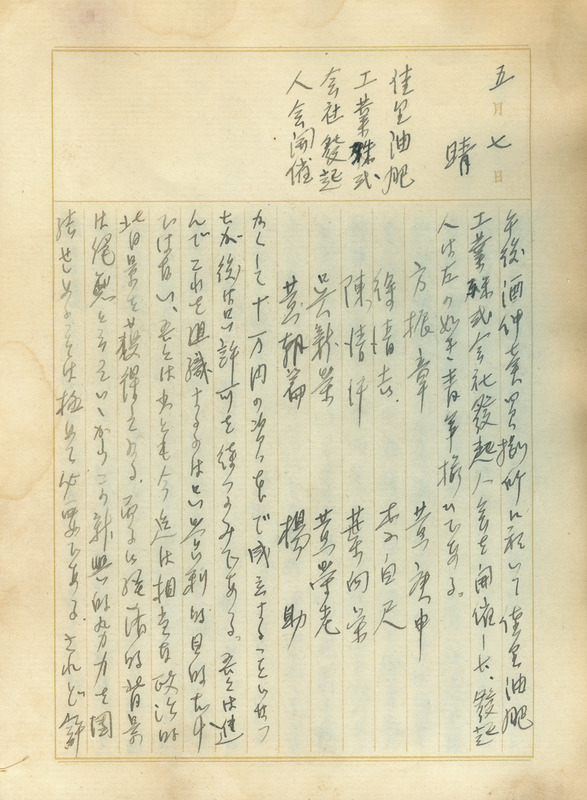 五月七日
晴
佳里油肥
工業株式
会社發起
人会開催
午後酒仲賣捌所に於いて佳里油肥
工業株式会社發起人会を開催した、發起
人は左の如き青年揃ひである。
方振章 黄庚申
徐清吉 李自尺
陳清汗 葉向榮
吳新榮 黄榮老
黄朝篇 楊助
かくして十万円の資本で成立することになつ
たが後は只許可を待つのみである。吾々は進
んでこれを組織するのは只営利的目的だけ
ではない、吾々は少くとも今迄は相当な政治的
背景を獲得してゐる。更に経済的背景
は僅かと云つていゝからこの新興的努力を團
結せしめることは極めて必要である。されど許